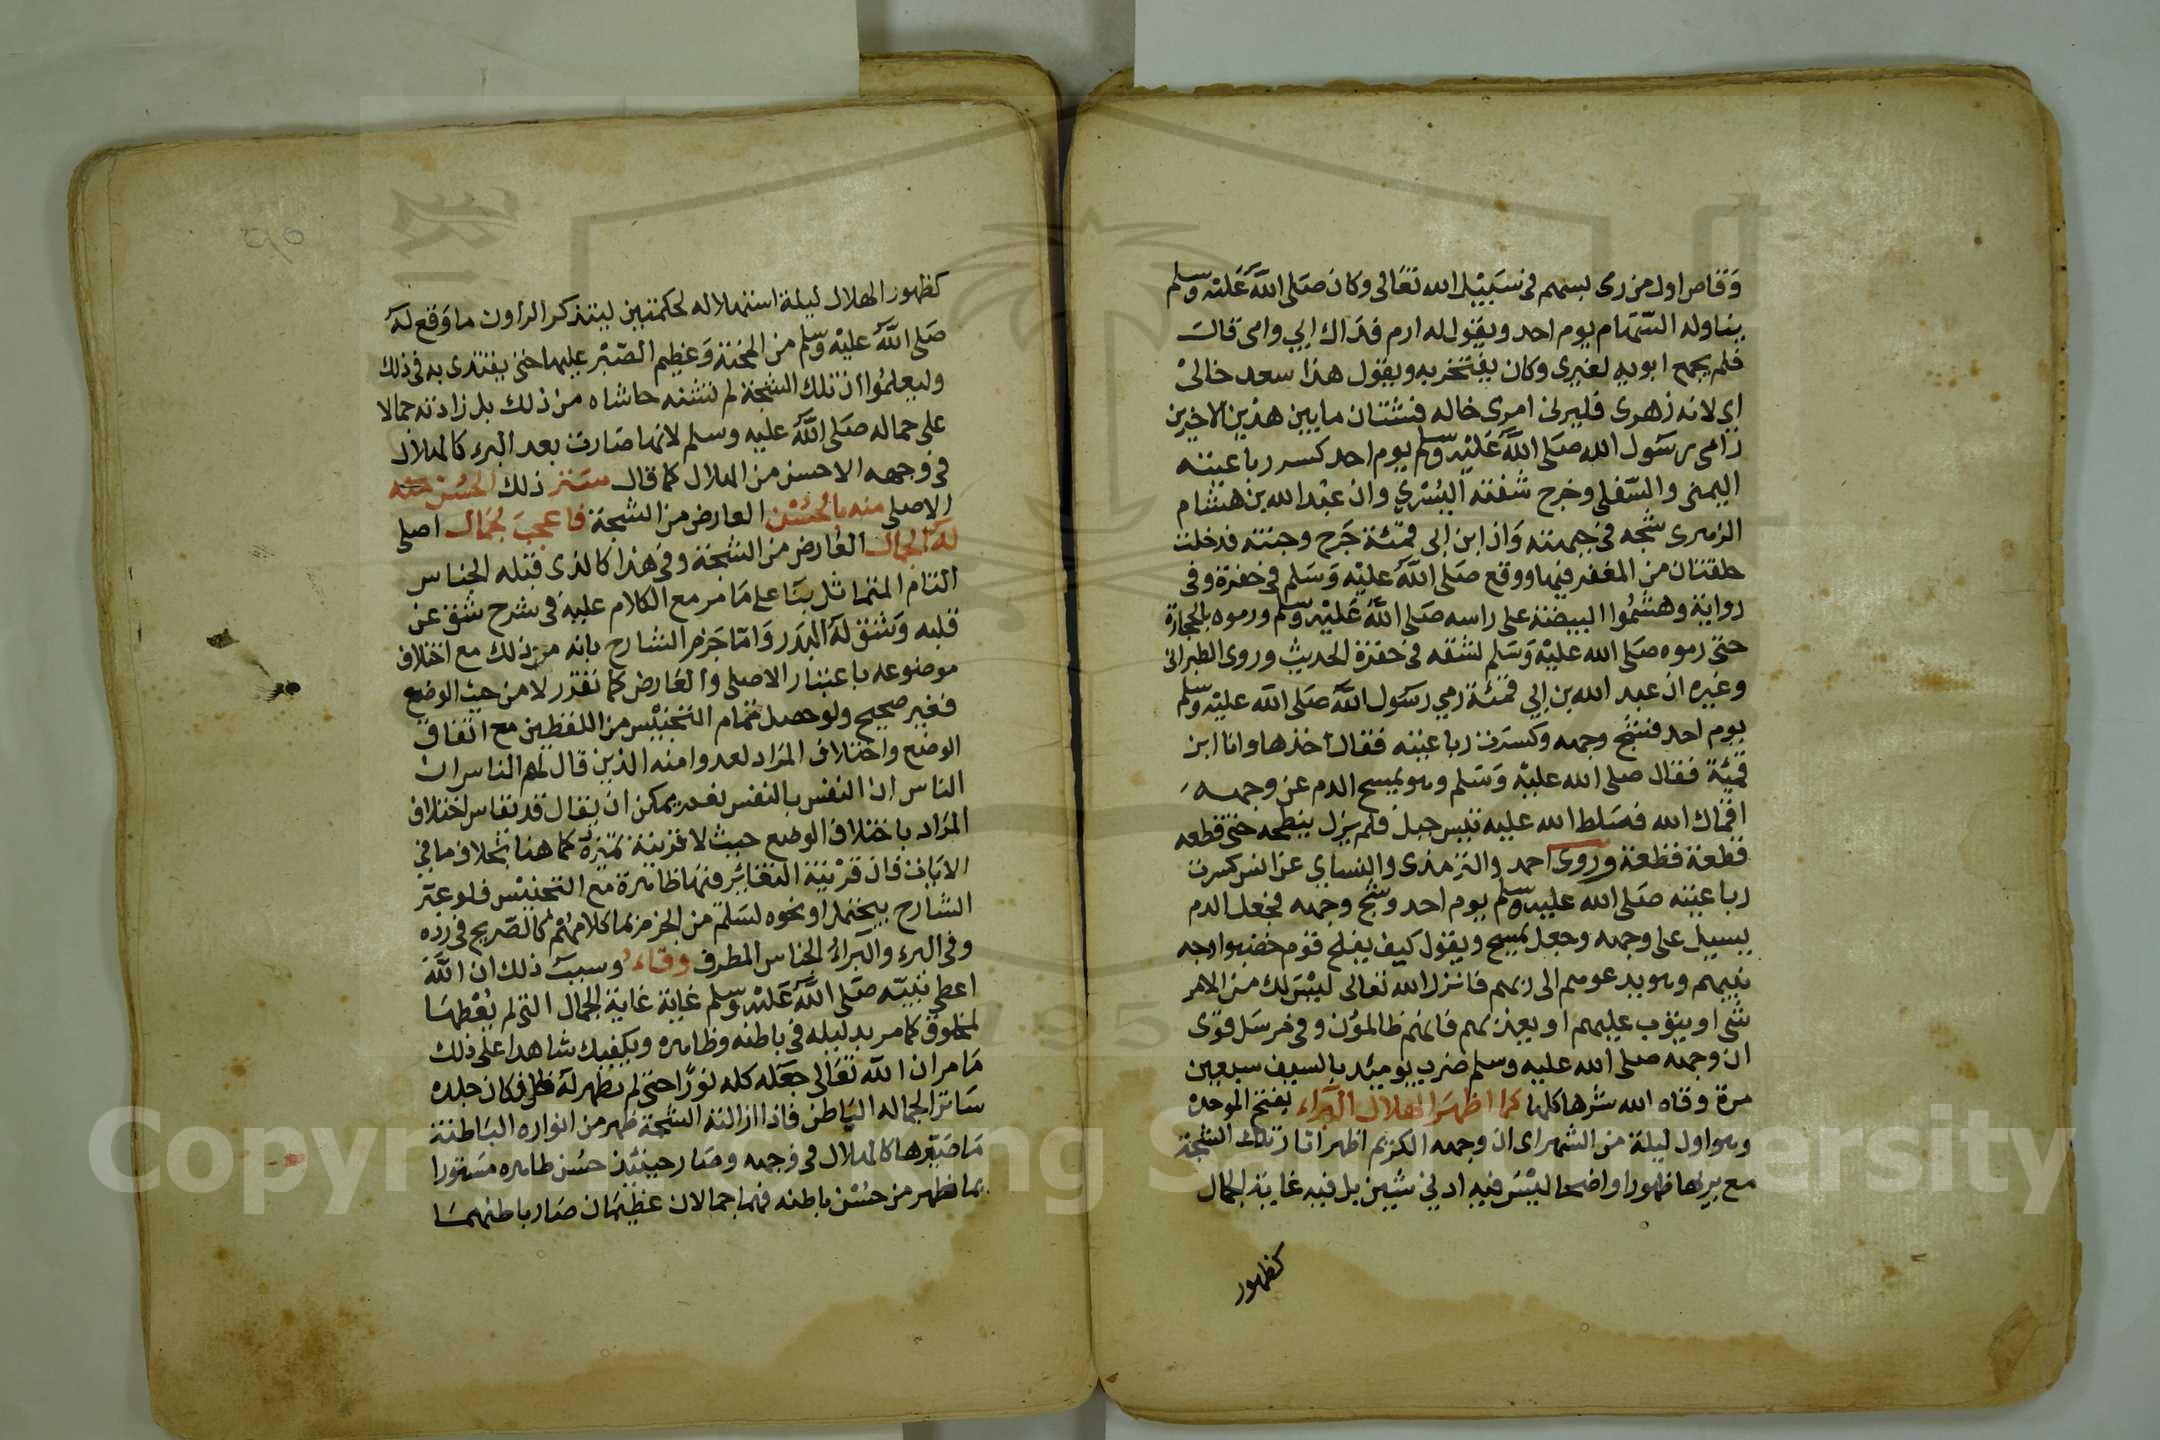 وقاص اول من رمى بسهم في سبيل الله تعالى وكان صلى الله عليه وسلم
يناوله السهام يوم احد ويقول له ارم فداك ابي وامي قالت
فلم يجمع ابويه لغيري وكان يفتخر به ويقول هذا سعد خالي
اي لانه زهري فليرني امرئ خاله فشتان ما بين هذين الاخرين
رامى رسول الله صلى الله عليه وسلم يوم احد كسر رباعيته
اليمنى والسفلى وجرح شفته اليسرى وان عبد الله بن هشام
الزهرى شجه في جبهته وان ابن ابي قمئة جرح وجنته فدخلت
حلقتان من المغفر فيها ووقع صلى الله عليه وسلم في حفرة وفي
رواية وهشموا البيضة على راسه صلى الله عليه وسلم ورموه بالحجارة
حتى رموه صلى الله عليه وسلم لشقه في حفرة الحديث وروى الطبراني
وغيره ان عبد الله بن ابي قمئة رمي رسول الله صلى الله عليه وسلم
يوم احد فشج وجهه وكسرت رباعيته فقال خذها وانا ابن
قمئة فقال صلى الله عليه وسلم وهو يمسح الدم عن وجهه
اقماك الله فسلط الله عليه تيس جبل فلم يزل ينطحه حتى قطعه
قطعة قطعة وروى احمد والترمذى والنساي عن انس كسرت
رباعيته صلى الله عليه وسلم يوم احد وشج وجهه فجعل الدم
يسيل على وجهه وجعل يمسح ويقول كيف يفلح قوم خضبوا وجه
نبيهم وهو يدعوهم الى ربهم فانزل الله تعالى ليس لك من الامر
شي او يتوب عليهم او يعذبهم فانهم ظالمون وفي مرسل قوى
ان وجهه صلى الله عليه وسلم ضرب يوميذ بالسيف سبعين
مرة وقاه الله شرها كلها كما اظهر الهلال البراء بفتح الموحدة
وهو اول ليلة من الشهر اى ان وجهه الكريم اظهر اثار تلك الشجة
مع بريها ظهورا واضحا ليس فيه ادنى شين بل فيه غاية الجمال
كظهور
كظهور الهلال ليلة استهلاله لحكمتين ليتذكر الراون ما وقع له
صلى الله عليه وسلم من المحنة وعظيم الصبر عليها حتى يقتدى به في ذلك
وليعلموا ان تلك الشجة لم تشنه حاشاه من ذلك بل زادته جمالا
على جماله صلى الله عليه وسلم لانها صارت بعد البرء كالهلال
في وجهه الاحسن من الهلال كما قال ستر ذلك الحسن منه
الاصلي منه بالحسن العارض من الشجة فاعجب لجمال اصلي
له الجمال العارض من الشجة وفي هذا كالذى قبله الجناس
التام المتماثل بنا على ما مر مع الكلام عليه في شرح شق عن
قلبه وشق له البدر واما جزم الشارح بانه من ذلك مع اختلاف
موضوعه باعتبار الاصلي والعارض كما تقرر لا من حيث الوضع
فغير صحيح ولو حصل تمام التجنيس من اللفظين مع اتفاق
الوضع واختلاف المراد لعدوا منه الذين قال لهم الناس ان
الناس ان النفس بالنفس نعم يمكن ان يقال قد تقاس اختلاف
المراد باختلاف الوضع حيث لا قرينة تميزه كما هنا بخلاف ما في
الايات فان قرينة التغائر فيها ظاهرة مع التجنيس فلو عبر
الشارح بيحتمل او نحوه لسلم من الجزم بما كلامهم كالصريح في رده
وفي البرء والبراء الجناس المطرف وقاء وسبب ذلك ان الله
اعطى نبيه صلى الله عليه وسلم غاية غاية الجمال التي لم يعطها
لمخلوق كما مر بدليله في باطنه وظاهره ويكفيك شاهدا على ذلك
ما مر ان الله تعالى جعله كله نورا حتى لم يظهر له ظل فكان جلده
ساترا لجماله الباطن فاذا ازالته الشجة ظهر من انواره الباطنة
ما صيرها كالهلال في وجهه وصار حينئذ حسن ظاهره مستورا
بما ظهر من حسن باطنه فهما جمالان عظيمان صار باطنهما
Copyright © King Saud University